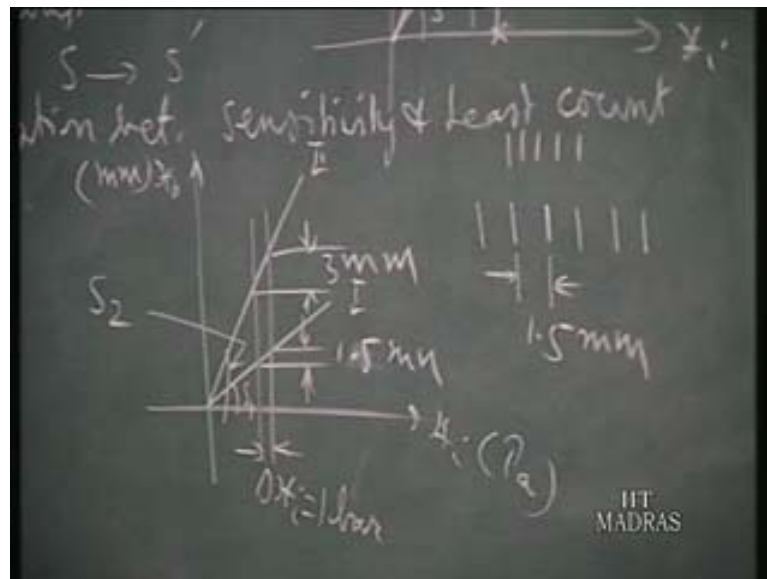 S → S′
x_i
bet. sensitivity & Least count
(mm) x_o
II
3mm
I
S_2
1.5mm
1.5mm
x_i (Pa)
Δx_i = 1 bar
IIT
MADRAS